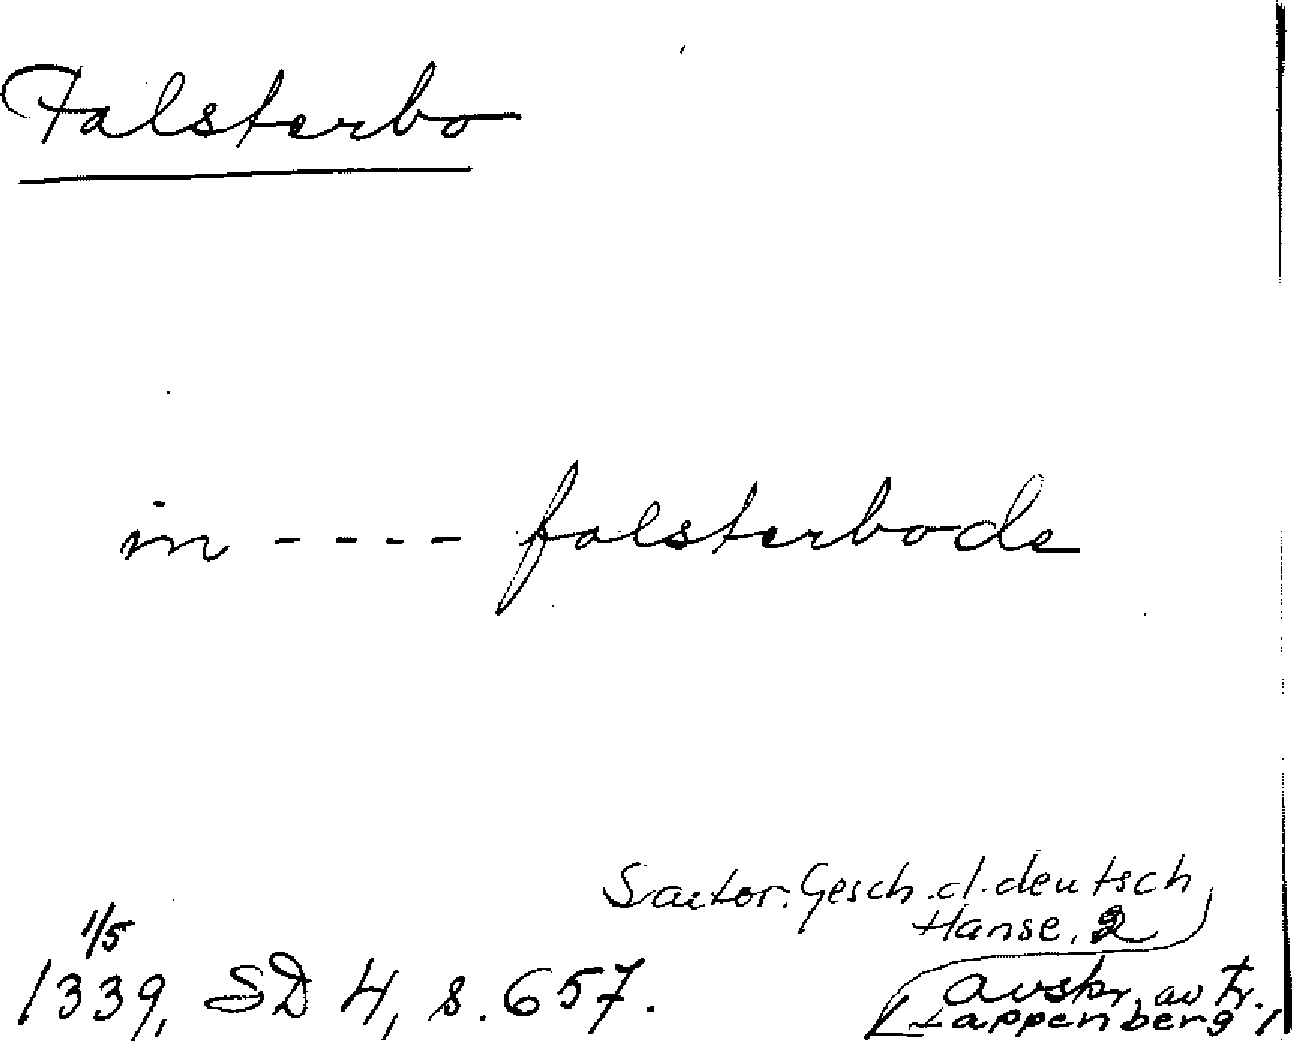 Falsterbo
in ---- falsterbode
Sartor. Gesch. d. deutsch
Hanse, 2
1/5
1339, SD 4, s. 657.
avskr. av tr.
Lappenberg /